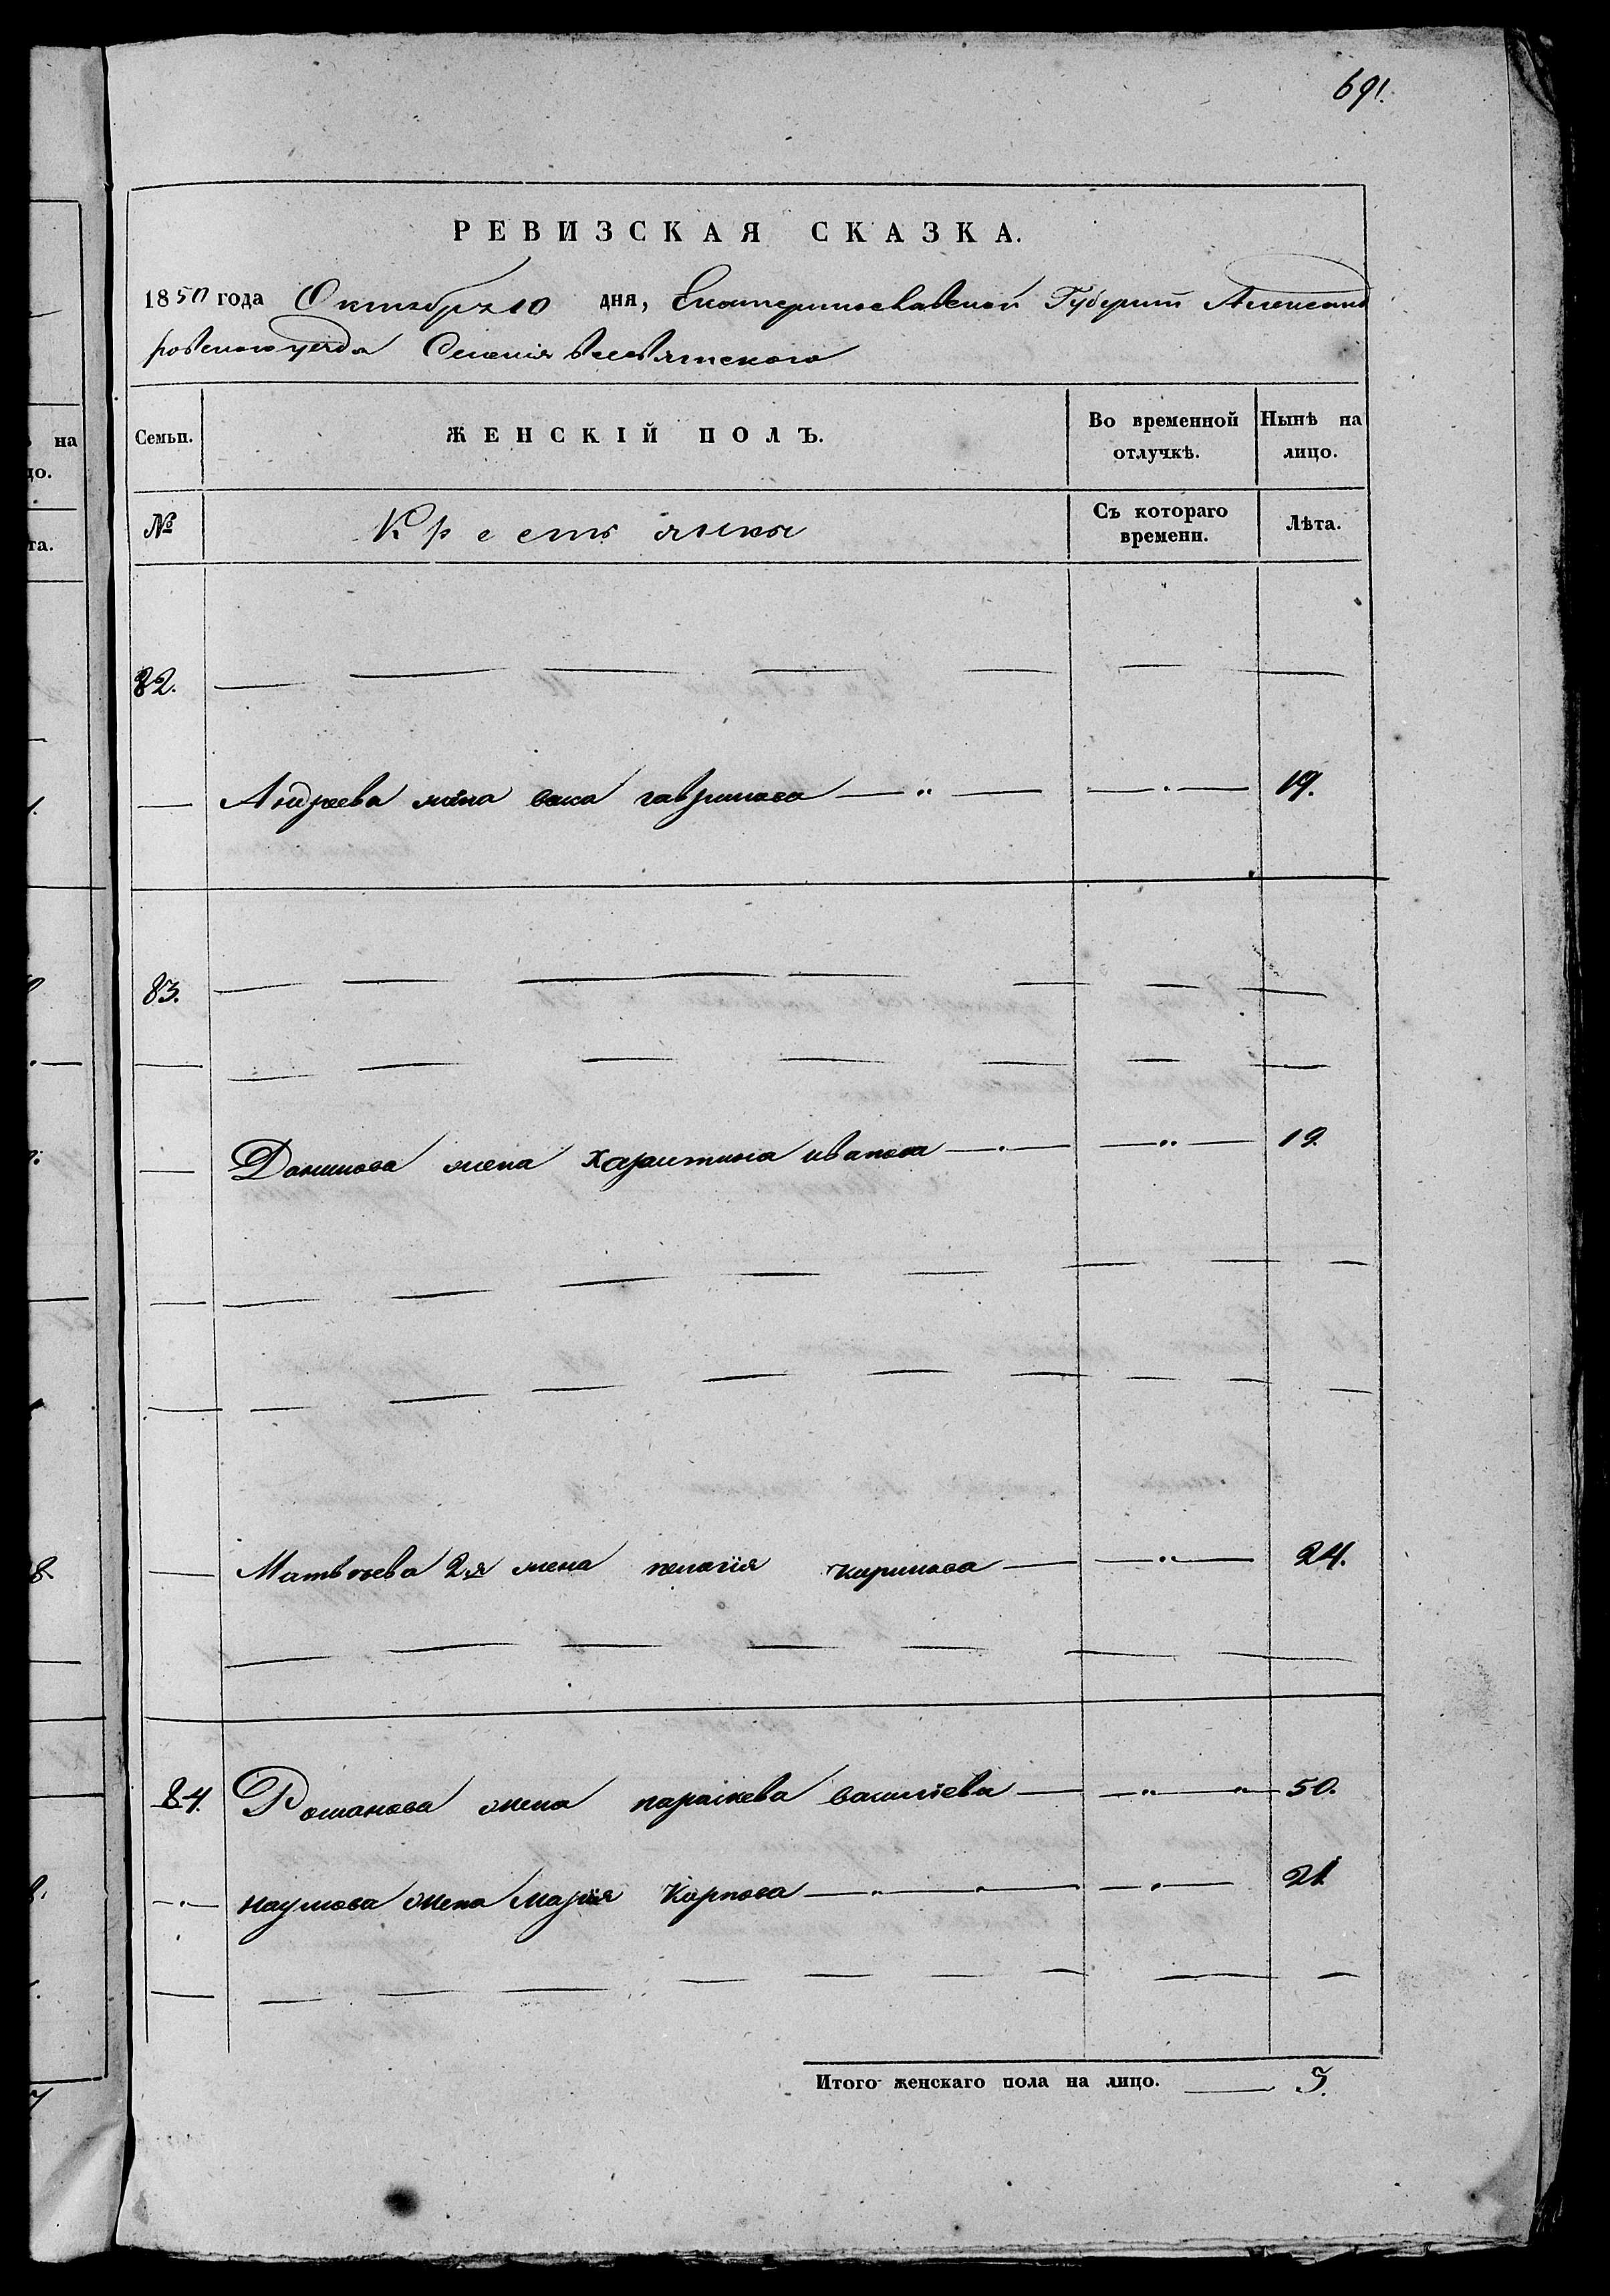 691.
РЕВИЗСКАЯ СКАЗКА.
1850 года Октября 10 дня, Екатеринославской Губерніи Александ
ровского уезда Селенія
Семьи. ЖЕНСКІЙ ПОЛЪ. Во временной отлучкѣ. Нынѣ на лицо.
№ Крестьянки Съ котораго времени. Лѣта.
82.
Андреева жена гаврилова 19.
83.
Данилова жена Харитина иванова 19.
Матвѣева 2я жена пелагія кирилова 24.
84. Романова жена параскева васильева 50.
наумова жена Марія Карпова 21.
Итого женскаго пола на лицо. 5.
на
цо.
та.
8.